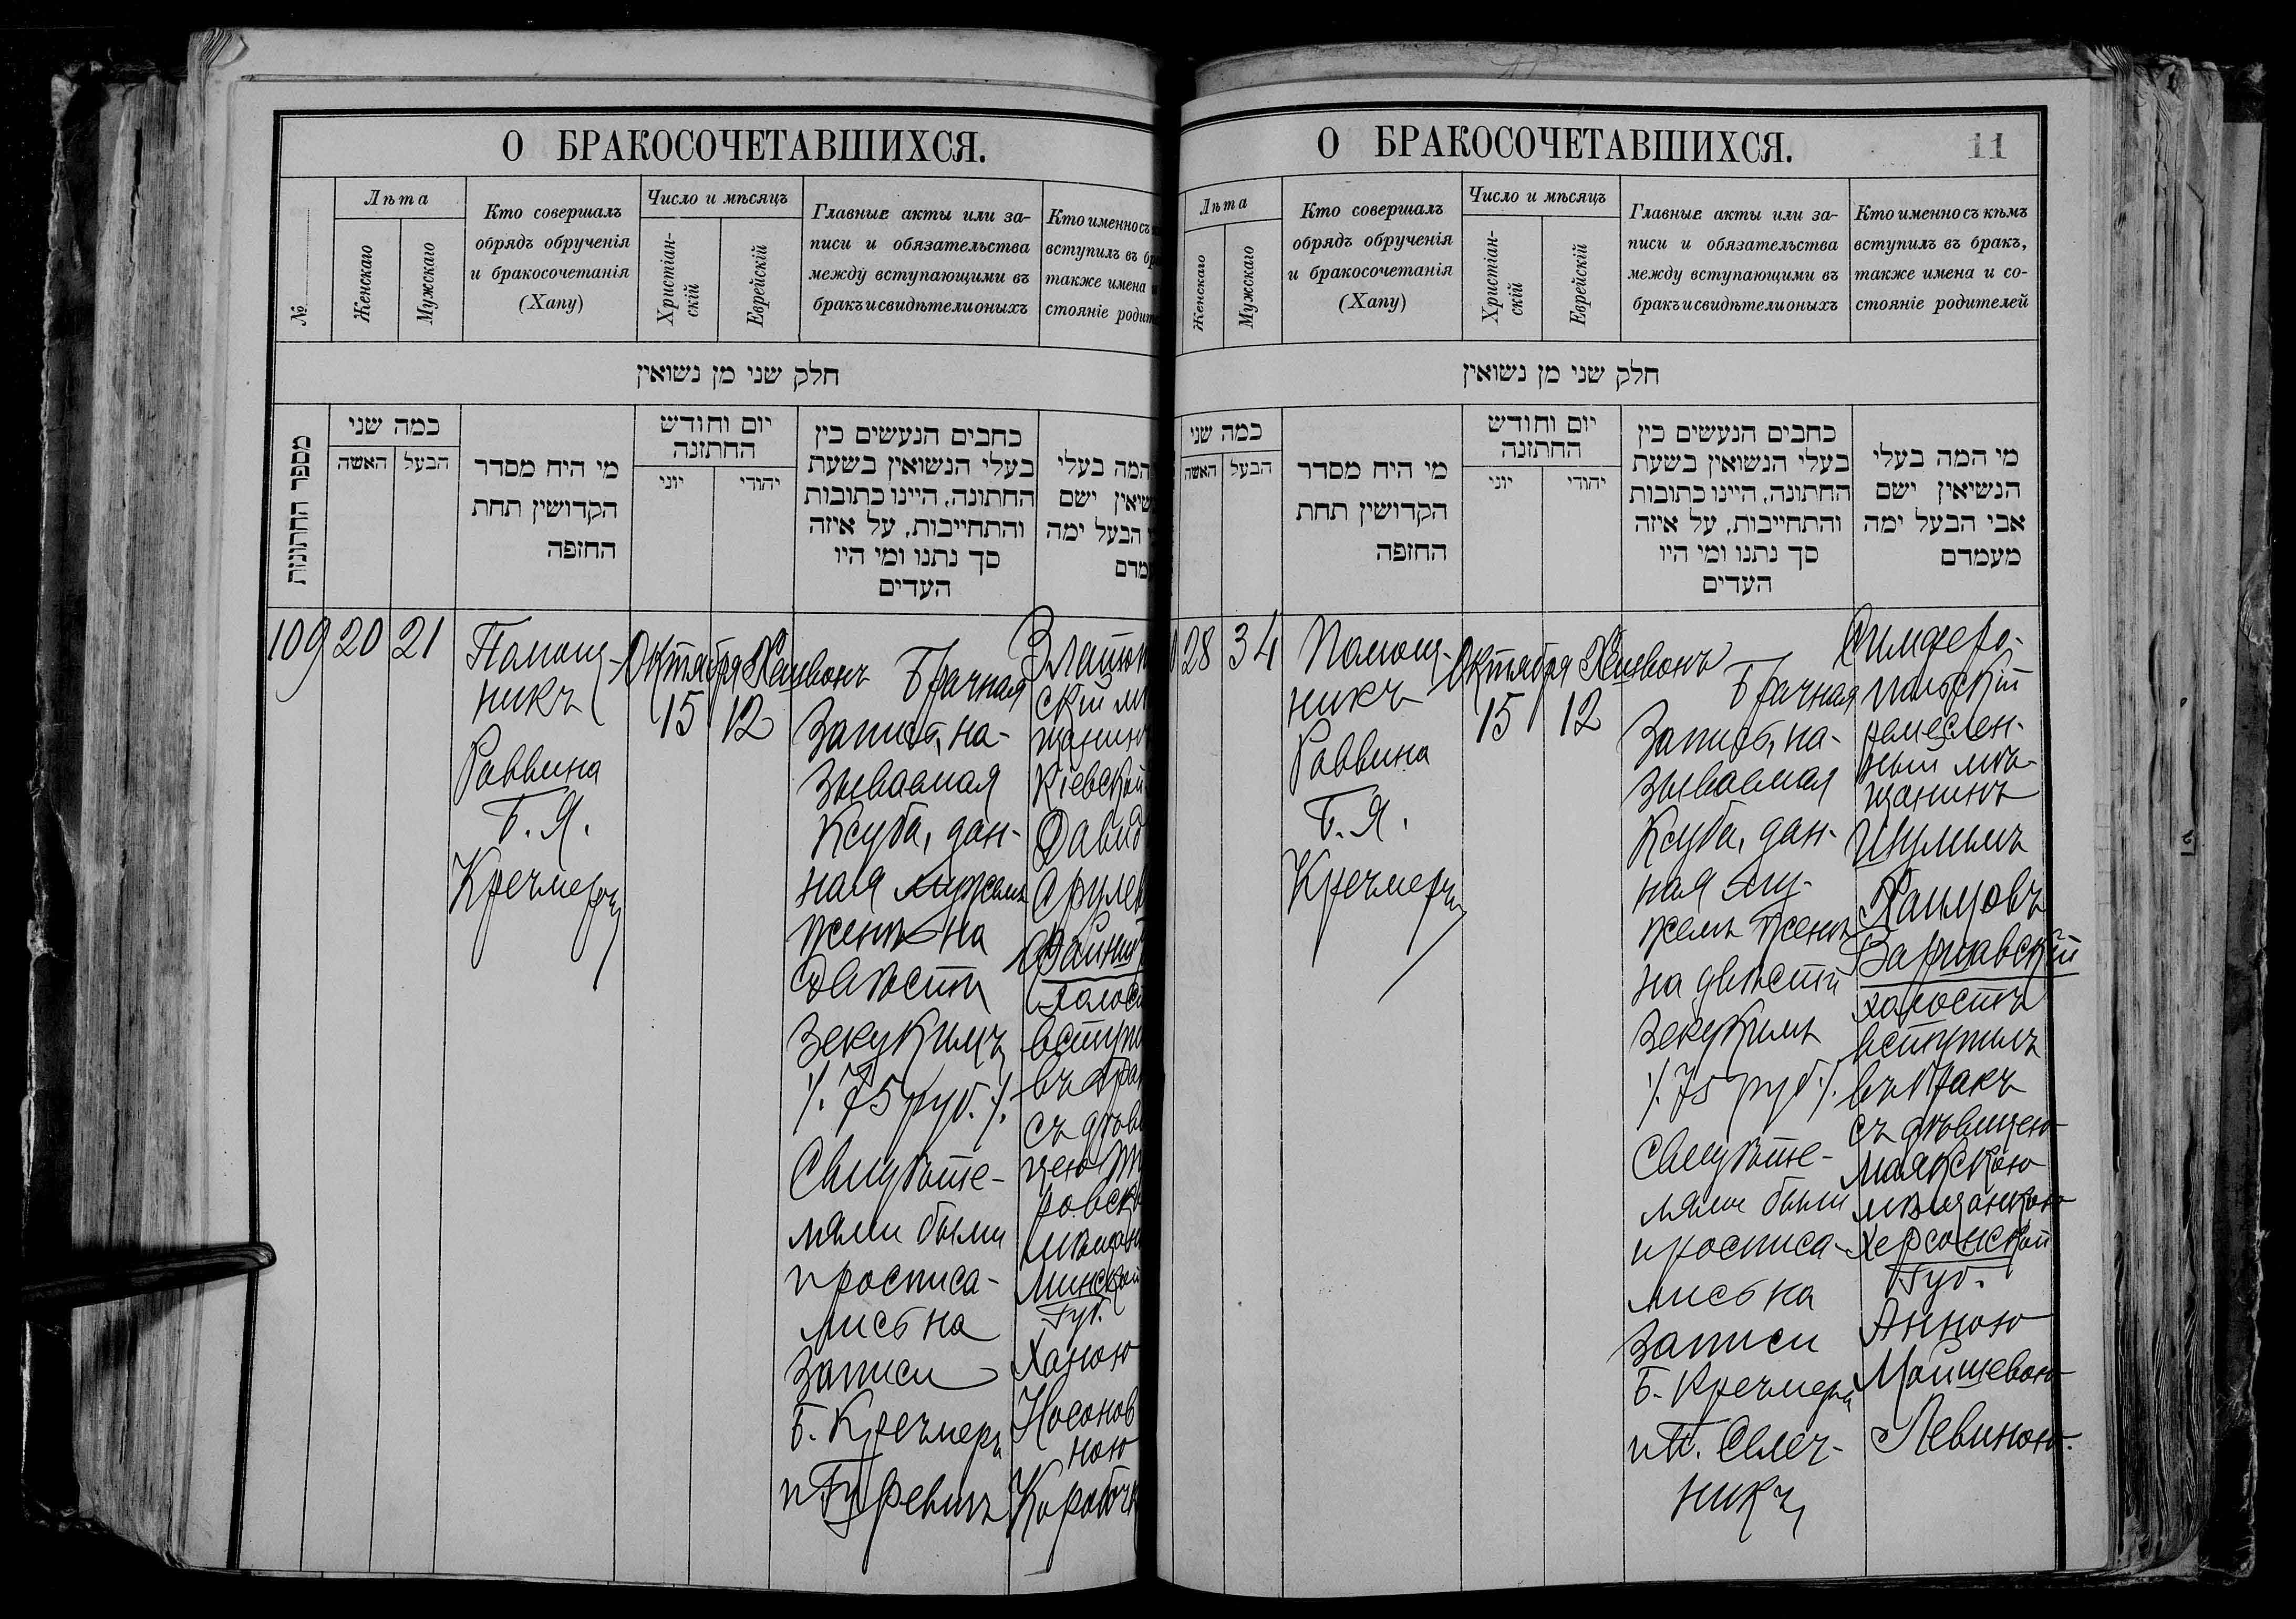 О БРАКОСОЧЕТАВШИХСЯ.
№
Лѣта
Женскаго
Мужскаго
Кто совершалъ
обрядъ обрученія
и бракосочетанія
(Хапу)
Число и мѣсяцъ
Христіан-
скій
Еврейскій
Главные акты или за-
писи и обязательства
между вступающими въ
бракъ и свидѣтели оныхъ
Кто именно съ
вступилъ въ
также имена
стояніе
חלק שני מן נשואין
מספר החתונות
כמה שני
האשה
הבעל
מי היח מסדר
הקדושין תחת
החזפה
יום וחודש
החתזנה
יוני
יהודי
כחבים הנעשים כין
בעלי הנשואין בשעת
החתונה, היינו כתובות
והתחייבות, על איזה
סך נתנו ומי היו
העדים
המה בעלי
ישם
הבעל ימה
109
20
21
Помощ-
никъ
Раввина
Б. Я.
Кречмеръ
Октября
15
Хешвонъ
12
Брачная
Запись, на-
зываемая
Ксуба, дан-
ная мужемъ
женѣ на
двѣсти
зекукимъ
/. 75 руб. /.
Свидѣте-
лями были
и росписа-
лись на
записи
Б. Кречмеръ
и Гуревичъ
скій
Кіевской
Давид
въ
съ
цею
Минской
Губ.
Ханою
Носонов
ною
О БРАКОСОЧЕТАВШИХСЯ.
11
Лѣта
Женскаго
Мужскаго
Кто совершалъ
обрядъ обрученія
и бракосочетанія
(Хапу)
Число и мѣсяцъ
Христіан-
скій
Еврейскій
Главные акты или за-
писи и обязательства
между вступающими въ
бракъ и свидѣтели оныхъ
Кто именно съ кѣмъ
вступилъ въ бракъ,
также имена и со-
стояніе родителей
חלק שני מן נשואין
כמה שני
האשה
הבעל
מי היח מסדר
הקדושין תחת
החזפה
יום וחודש
החתזנה
יוני
יהודי
כחבים הנעשים כין
בעלי הנשואין בשעת
החתונה, היינו כתובות
והתחייבות, על איזה
סך נתנו ומי היו
העדים
מי המה בעלי
הנשיאין ישם
אבי הבעל ימה
מעמדם
28
34
Помощ-
никъ
Раввина
Б. Я.
Кречмеръ
Октября
15
Хешвонъ
12
Брачная
Запись, на-
зываемая
Ксуба, дан-
ная му-
жемъ женѣ
на двѣсти
зекукимъ
/. 75 руб /.
Свидѣте-
лями были
и росписа-
лись на
записи
Б. Кречмеръ
и
Симферо-
польскій
ремеслен-
ный мѣ-
щанинъ
Шулимъ
Хаимовъ
Варшавскій
холостъ
вступилъ
въ бракъ
съ дѣвицею
Маякскою
мѣщанкою
Херсонской
Губ.
Анною
Мойшевою
Левиною.